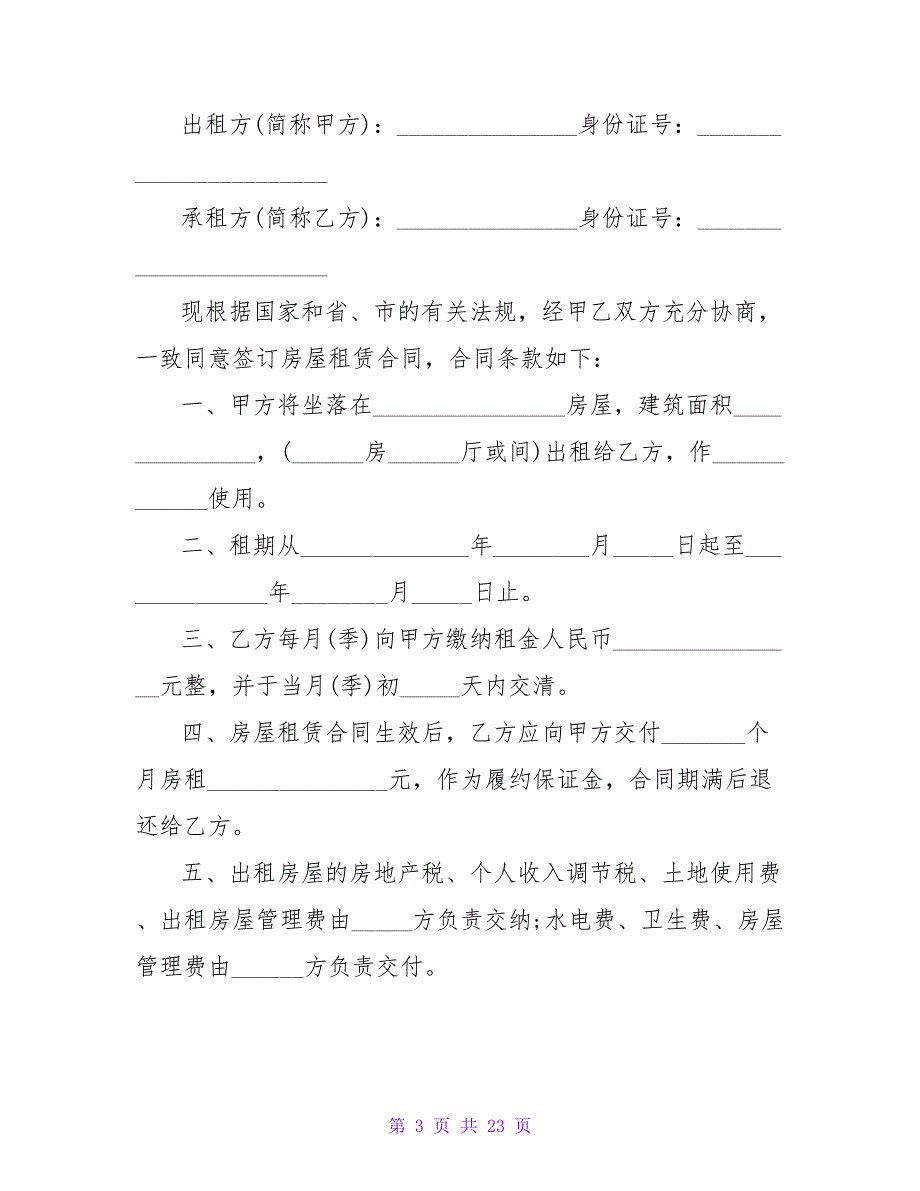 出租方(简称甲方)：_______________身份证号：_______
________________
承租方(简称乙方)：_______________身份证号：_______
________________
现根据国家和省、市的有关法规，经甲乙双方充分协商，
一致同意签订房屋租赁合同，合同条款如下：
一、甲方将坐落在________________房屋，建筑面积____
__________，(______房______厅或间)出租给乙方，作______
______使用。
二、租期从______________年________月_____日起至___
___________年________月_____日止。
三、乙方每月(季)向甲方缴纳租金人民币______________
__元整，并于当月(季)初_____天内交清。
四、房屋租赁合同生效后，乙方应向甲方交付_______个
月房租_______________元，作为履约保证金，合同期满后退
还给乙方。
五、出租房屋的房地产税、个人收入调节税、土地使用费
、出租房屋管理费由_____方负责交纳;水电费、卫生费、房屋
管理费由______方负责交付。
第 3 页 共 23 页